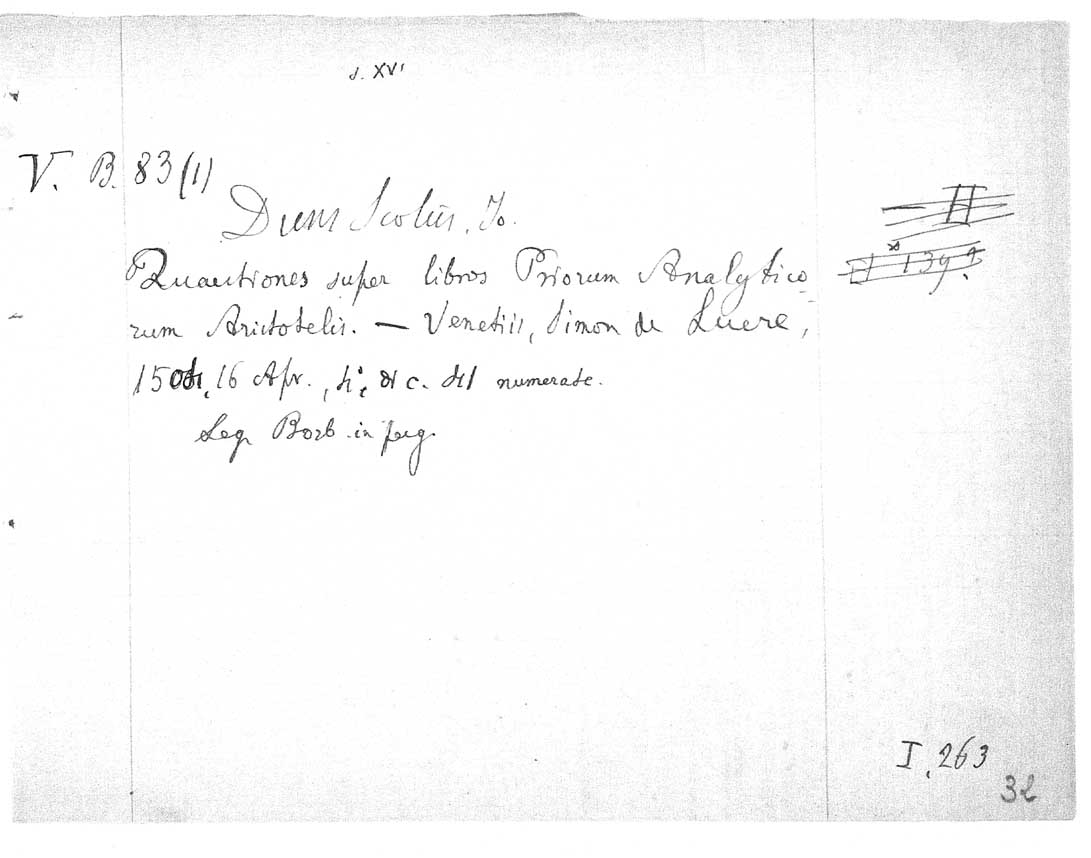 s. XVI
V. B. 83(1)
Duns Scotus, Jo.
Quaestiones super libros Priorum Analytico-
rum Aristotelis. — Venetiis, Simon de Luere,
16 Apr., 4°, c. numerate.
Leg. Borb. in perg.
II
I. 263
32